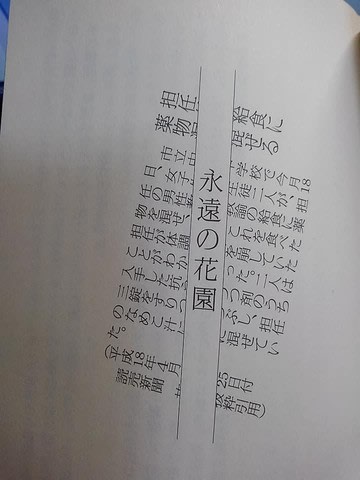 永遠の花園
担任 給食に
薬物 混ぜる
市立中 学校で今月18
日、女子 生徒二人が、担
任の男性教 諭の給食に薬
物を混ぜ、 これを食べた
担任が体調 を崩していた
ことがわか った。二人は
入手した抗 うつ剤のうち
三錠をすりつ ぶし、担任
のなめこ汁に 混ぜてい
た。
(平成18年4月 25日付
読売新聞 抜粋引用)